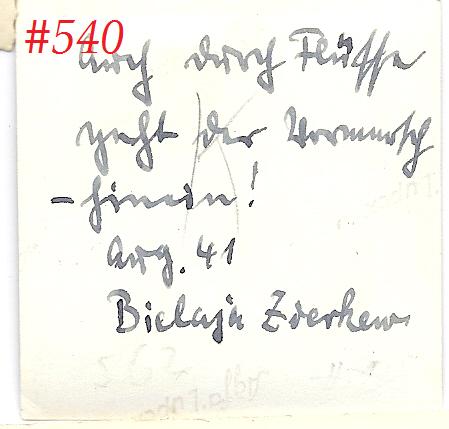 #540
Auch durch Flüsse
geht der Vormarsch
- hinein!
Aug. 41
Bielaja Zierkew